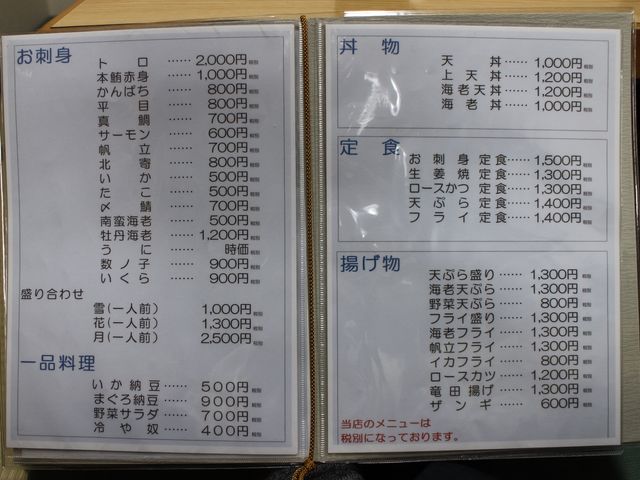 お刺身
トロ ‥‥‥ 2,000円税別
本鮪赤身 ‥‥‥ 1,000円税別
かんぱち ‥‥‥ 800円税別
平目 ‥‥‥ 800円税別
真鯛 ‥‥‥ 700円税別
サーモン ‥‥‥ 600円税別
帆立 ‥‥‥ 700円税別
北寄 ‥‥‥ 800円税別
いか ‥‥‥ 500円税別
たこ ‥‥‥ 500円税別
〆鯖 ‥‥‥ 700円税別
南蛮海老 ‥‥‥ 500円税別
牡丹海老 ‥‥‥ 1,200円税別
うに ‥‥‥ 時価
数ノ子 ‥‥‥ 900円税別
いくら ‥‥‥ 900円税別
盛り合わせ
雪(一人前) 1,000円税別
花(一人前) 1,300円税別
月(一人前) 2,500円税別
一品料理
いか納豆 ‥‥‥ 500円税別
まぐろ納豆 ‥‥‥ 900円税別
野菜サラダ ‥‥‥ 700円税別
冷や奴 ‥‥‥ 400円税別
丼物
天丼 ‥‥‥ 1,000円税別
上天丼 ‥‥‥ 1,200円税別
海老天丼 ‥‥‥ 1,200円税別
海老丼 ‥‥‥ 1,000円税別
定食
お刺身定食 ‥‥‥ 1,500円税別
生姜焼定食 ‥‥‥ 1,300円税別
ロースかつ定食 ‥‥‥ 1,300円税別
天ぷら定食 ‥‥‥ 1,400円税別
フライ定食 ‥‥‥ 1,400円税別
揚げ物
天ぷら盛り ‥‥‥ 1,300円税別
海老天ぷら ‥‥‥ 1,300円税別
野菜天ぷら ‥‥‥ 800円税別
フライ盛り ‥‥‥ 1,300円税別
海老フライ ‥‥‥ 1,300円税別
帆立フライ ‥‥‥ 1,300円税別
イカフライ ‥‥‥ 800円税別
ロースカツ ‥‥‥ 1,200円税別
竜田揚げ ‥‥‥ 1,300円税別
ザンギ ‥‥‥ 600円税別
当店のメニューは
税別になっております。